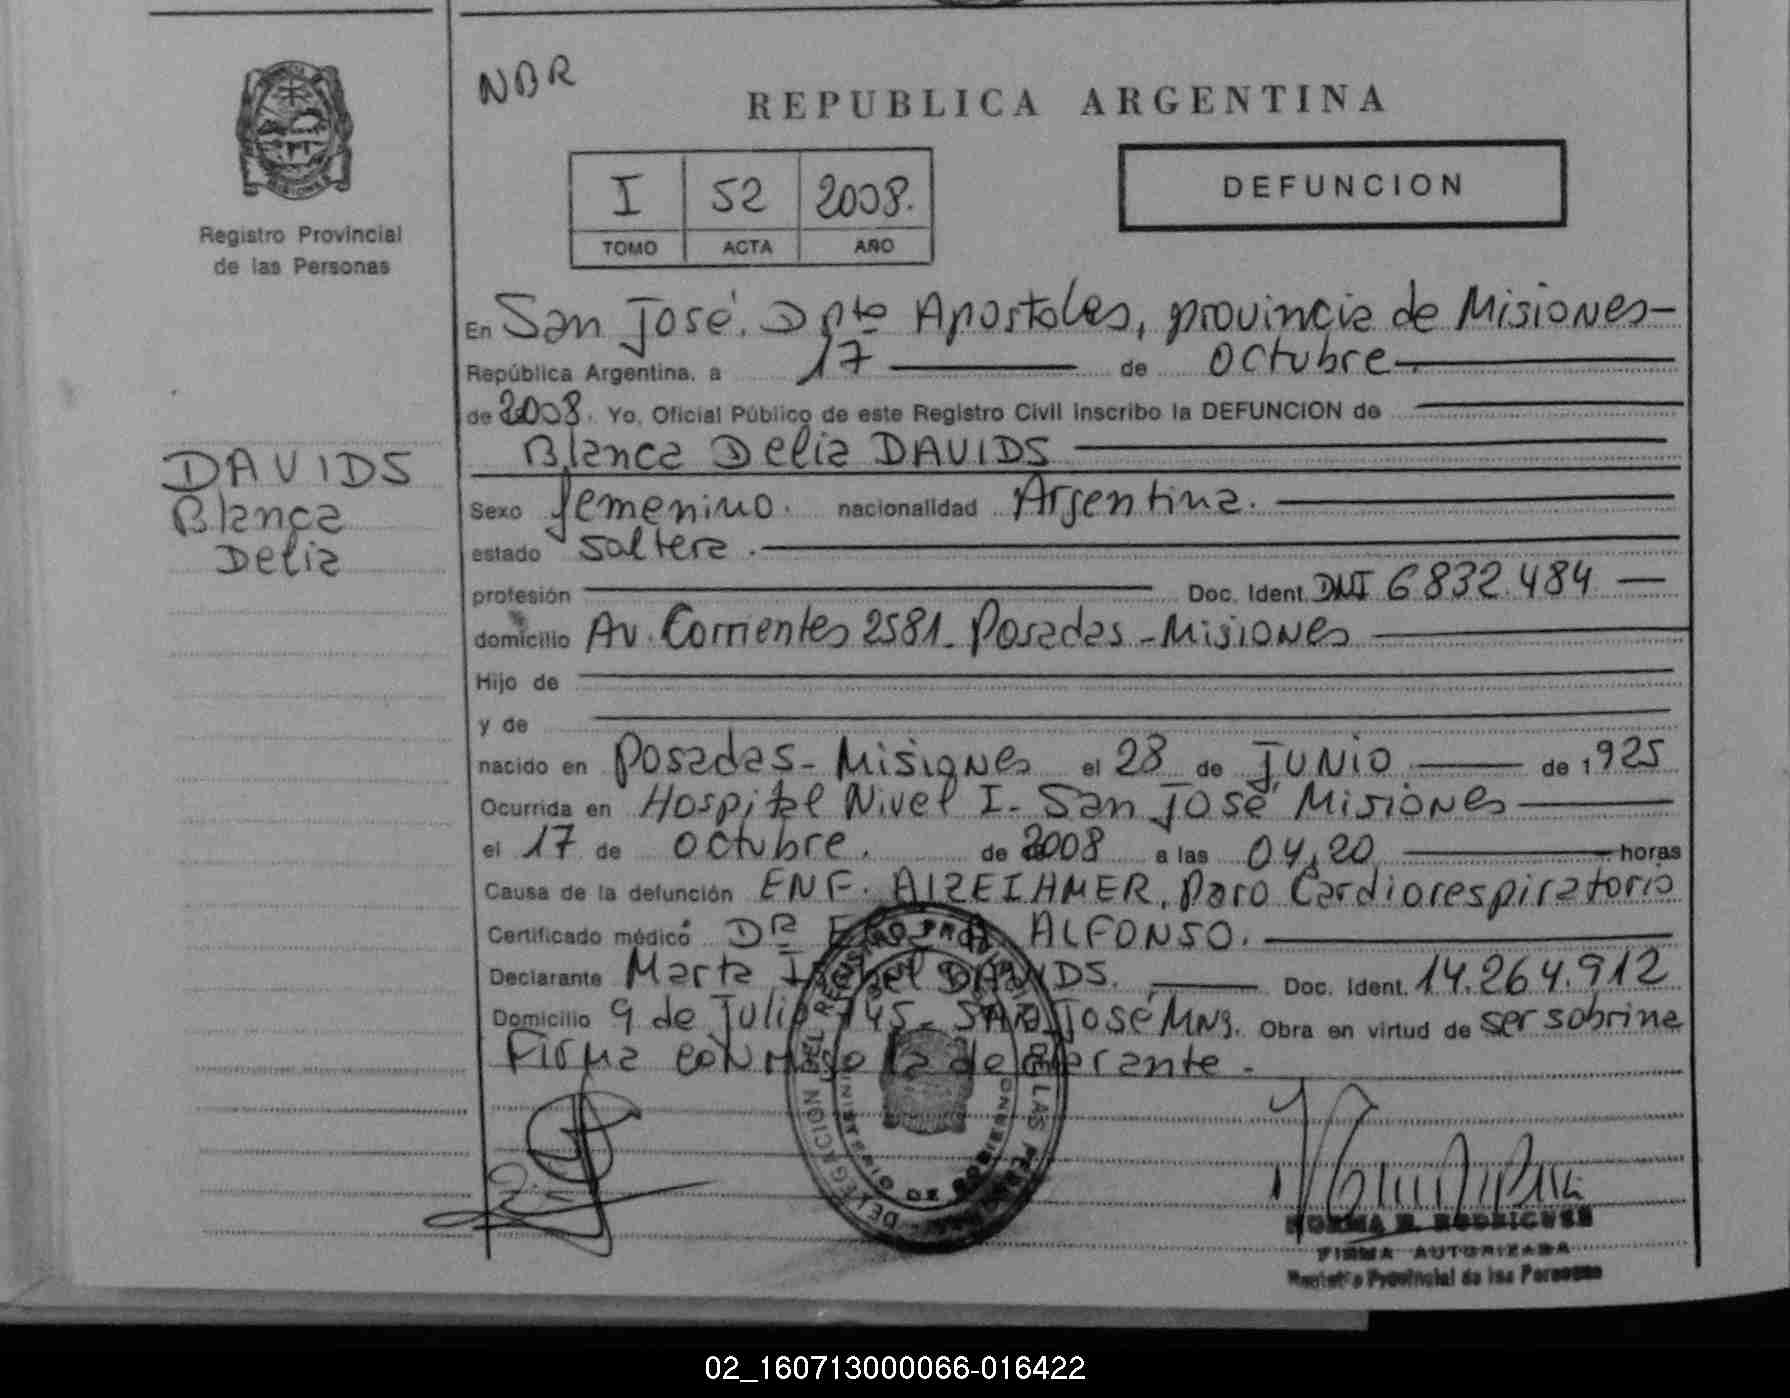 NBR
REPUBLICA ARGENTINA
I 52 2008.
TOMO ACTA AÑO
DEFUNCION
Registro Provincial
de las Personas
DAVIDS
Blanca
Delia
En San José. Dpto Apostoles, provincia de Misiones-
República Argentina, a 17 de octubre
de 2008. Yo, Oficial Público de este Registro Civil inscribo la DEFUNCION de
Blanca Delia DAVIDS
Sexo femenino. nacionalidad Argentina.
estado soltera.
profesión Doc. Ident. DNI 6832.484
domicilio Av. Corrientes 2581- Posadas - Misiones
Hijo de
y de
nacido en Posadas- Misiones el 28 de Junio de 1925
Ocurrida en Hospital Nivel I- San José Misiones
el 17 de octubre. de 2008 a las 04,20 horas
Causa de la defunción ENF. AlZEIHMER, Paro Cardiorespiratorio
Certificado médico DR ALFONSO.
Declarante Marta Isabel DAVIDS. Doc. Ident. 14.264.912
Domicilio 9 de Julio 745- SAN José Mns. Obra en virtud de ser sobrina
Firma conmigo la declarante.
DELEGACION DEL REGISTRO PROVINCIAL DE LAS PERSONAS
MINISTERIO DE GOBIERNO
NORMA B. RODRIGUEZ
FIRMA AUTORIZADA
Registro Provincial de las Personas
02_160713000066-016422